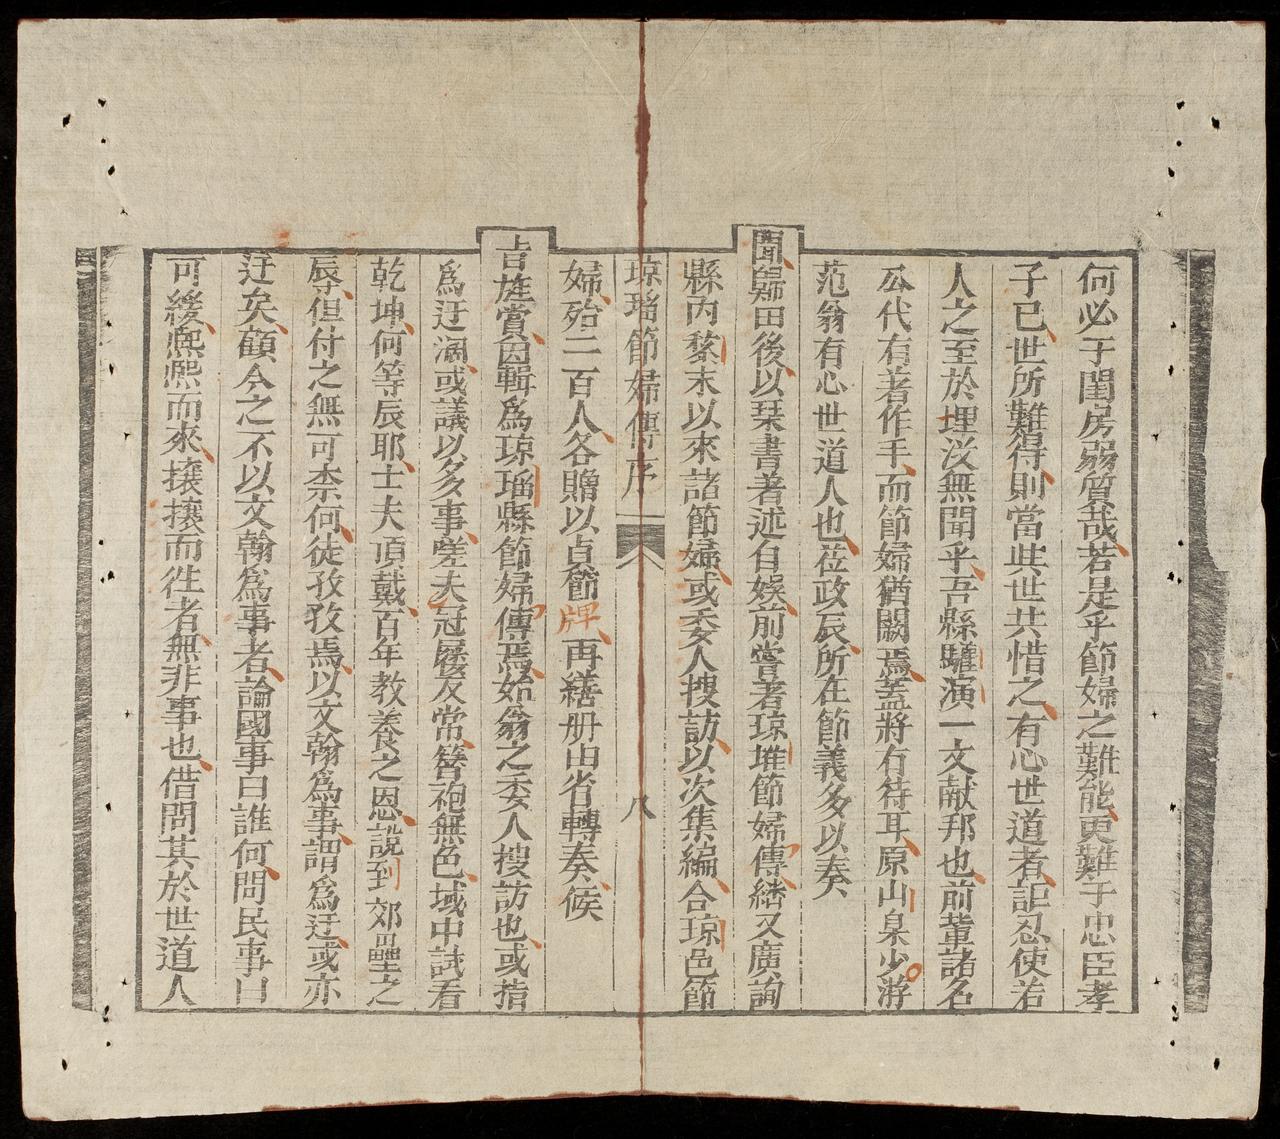 何必于閨房弱質哉若是乎節婦之難能更難于忠臣孝
子已世所難得則當此世共惜之有心世道者詎忍使若
人之至於埋沒無聞乎吾縣雖演一文献邦也前輩諸名
公代有著作手而節婦猶闕焉蓋將有待耳原山臬少游
范翁有心世道人也莅政辰所在節義多以奏
聞歸田後以琹書著述自娛前嘗著琼堆節婦傳続又廣詢
縣內黎末以來諸節婦或委人搜訪以次集編合琼邑節
琼瑠節婦傳序
八
婦殆二百人各贈以貞節牌再繕册由省轉奏候
吉旌賞因輯爲琼瑠縣節婦傳焉始翁之委人搜訪也或指
爲迂濶或議以多事嗟夫冠屦反常簪袍無色域中試看
乾坤何等辰耶士夫頂戴百年教養之恩說到郊壘之
辰但付之無可柰何徒孜孜焉以文翰爲事謂爲迂或亦
迂矣顧今之不以文翰爲事者論國事曰誰何問民事曰
可緩熙熙而來攘攘而徃者無非事也借問其於世道人